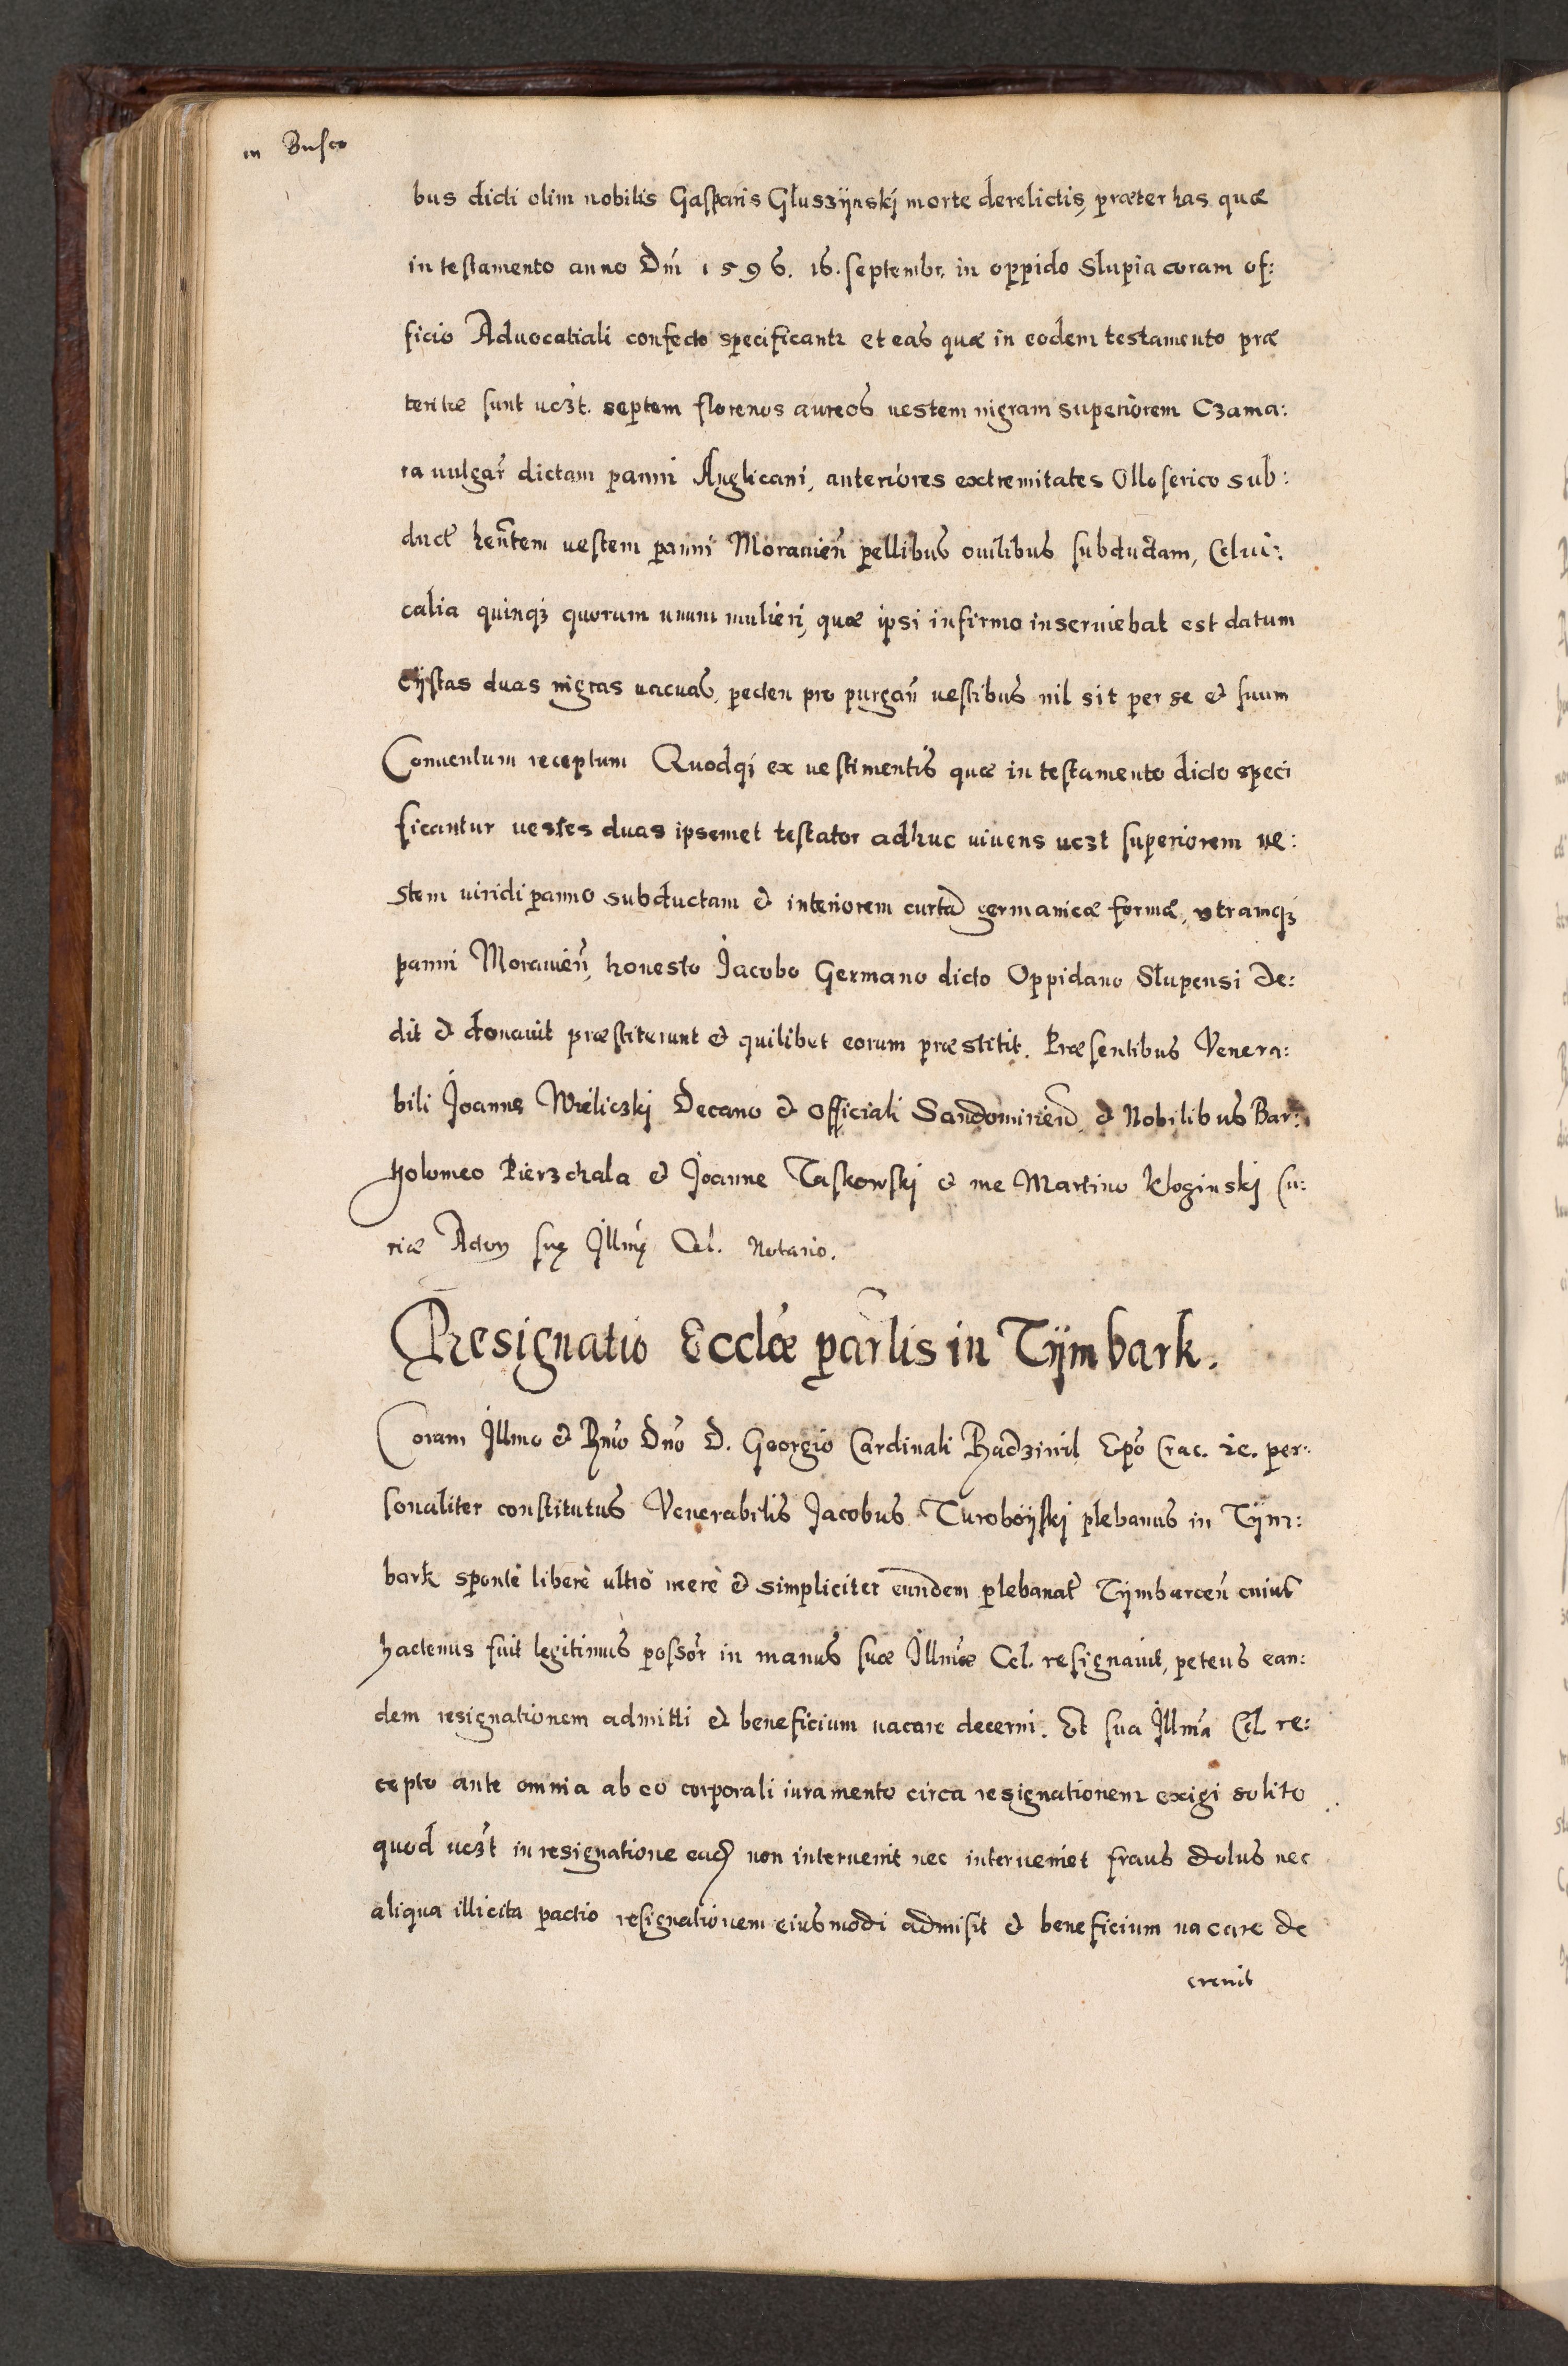 in Busco
bus dicti olim nobilis Gasparis Gluszÿnskj morte derelictis, præter has quæ
in testamento anno Dnī 1596. 16. septembr. in oppido Slupia coram of:
ficio Advocatiali confecto specificantr et eas quæ in eodem testamento præ
teritæ sunt uczt. septem florenos aureos uestem nigram superiorem Czama:
ra uulgar̃ dictam panni Anglicani, anteriores extremitates Olloserico sub:
duct̃ hen̄tem uestem panni Morauien̄ pellibus ouilibus subductam, Celui:
calia quinqȝ quorum unum mulieri, quæ ipsi infirmo inseruiebat est datum
Cÿstas duas nigras uacuas, pecten pro purgan̄ uestibus nil sit per se et suum
Conuentum receptum Quodqȝ ex uestimentis quæ in testamento dicto speci
ficantur uestes duas ipsemet testator adhuc uiuens uczt superiorem ue:
stem uiridi panno subductam et interiorem curtã germanicæ formæ, utramqȝ
panni Morauien̄, honesto Jacobo Germano dicto Oppidano Slupensi de:
dit et donauit præstiterunt et quilibet eorum præstitit. Præsentibus Venera:
bili Joanne Wieliczkj Decano et Officiali Sandomirien̄, et Nobilibus Bar:
tholomeo Pierzchala et Joanne Taskowskj et me Martino Kloginskj Cu:
riæ Actor̃ suę Illmę Cel. Notario.
Resignatio Eccl̃æ par̃lis in Tÿmbark.
Coram Illmo et Rn̄o Dn̄o D. Georgio Cardinali Radziuil Ep̃o Crac. &c. per:
sonaliter constitutus Venerabilis Jacobus Turoboÿskj plebanus in Tÿm:
bark sponte liberè ultrò merè et simpliciter eundem plebanat̃ Tÿmbarcen̄ cuius
hactenus fuit legitimus possor̃ in manus suæ Illmæ Cel. resignauit, petens ean:
dem resignationem admitti et beneficium uacare decerni. Et sua Illma Cel. re:
cepto ante omnia ab eo corporali iuramento circa resignationem exigi solito
quod uczt in resignatione ead̃ non interuenit nec interueniet fraus dolus nec
aliqua illicita pactio resignationem eiusmodi admisit et beneficium uacare de
creuit